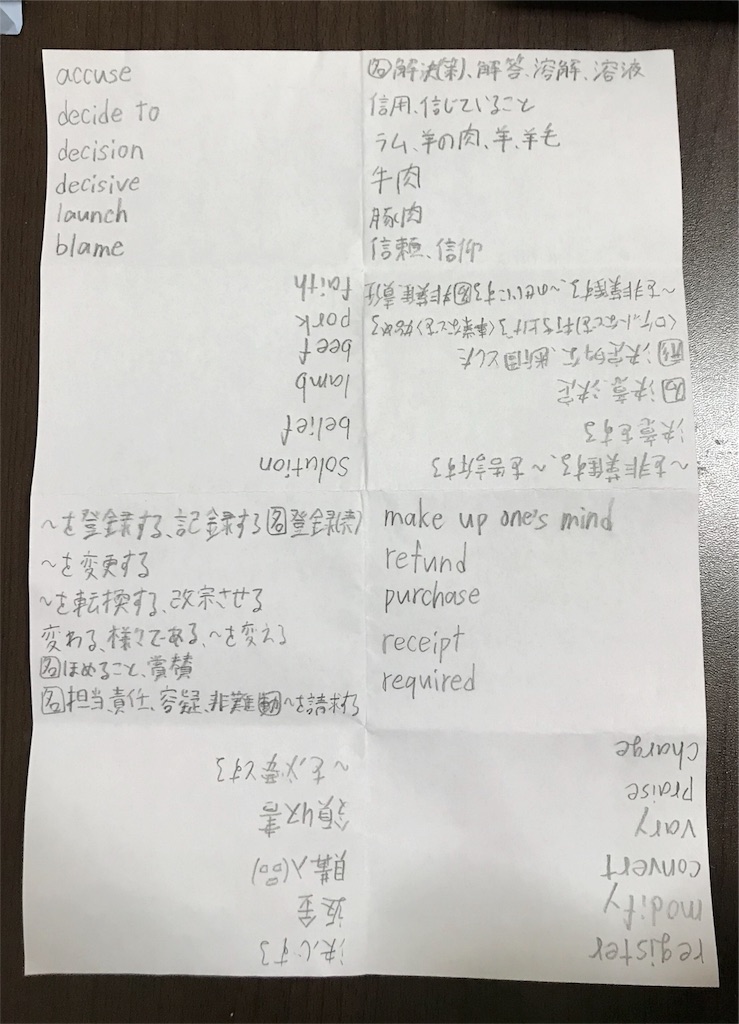 accuse
decide to
decision
decisive
launch
blame
名解決(策)、解答、溶解、溶液
信用、信じていること
ラム、羊の肉、羊、羊毛
牛肉
豚肉
信頼、信仰
solution
belief
lamb
beef
pork
faith
~を非難する、~を告訴する
決意をする
名決意、決定
形決定的な、断固とした
(ロケットなど)を打ち上げる(事業など)を始める
~を非難する、~のせいにする名非難、責任
~を登録する、記録する名登録(簿)
~を変更する
~を転換する、改宗させる
変わる、様々である、~を変える
名ほめること、賞賛
名担当、責任、容疑、非難動~を請求する
make up one's mind
refund
purchase
receipt
required
決心する
返金
購入(品)
領収書
~を必要とする
register
modify
convert
vary
praise
charge